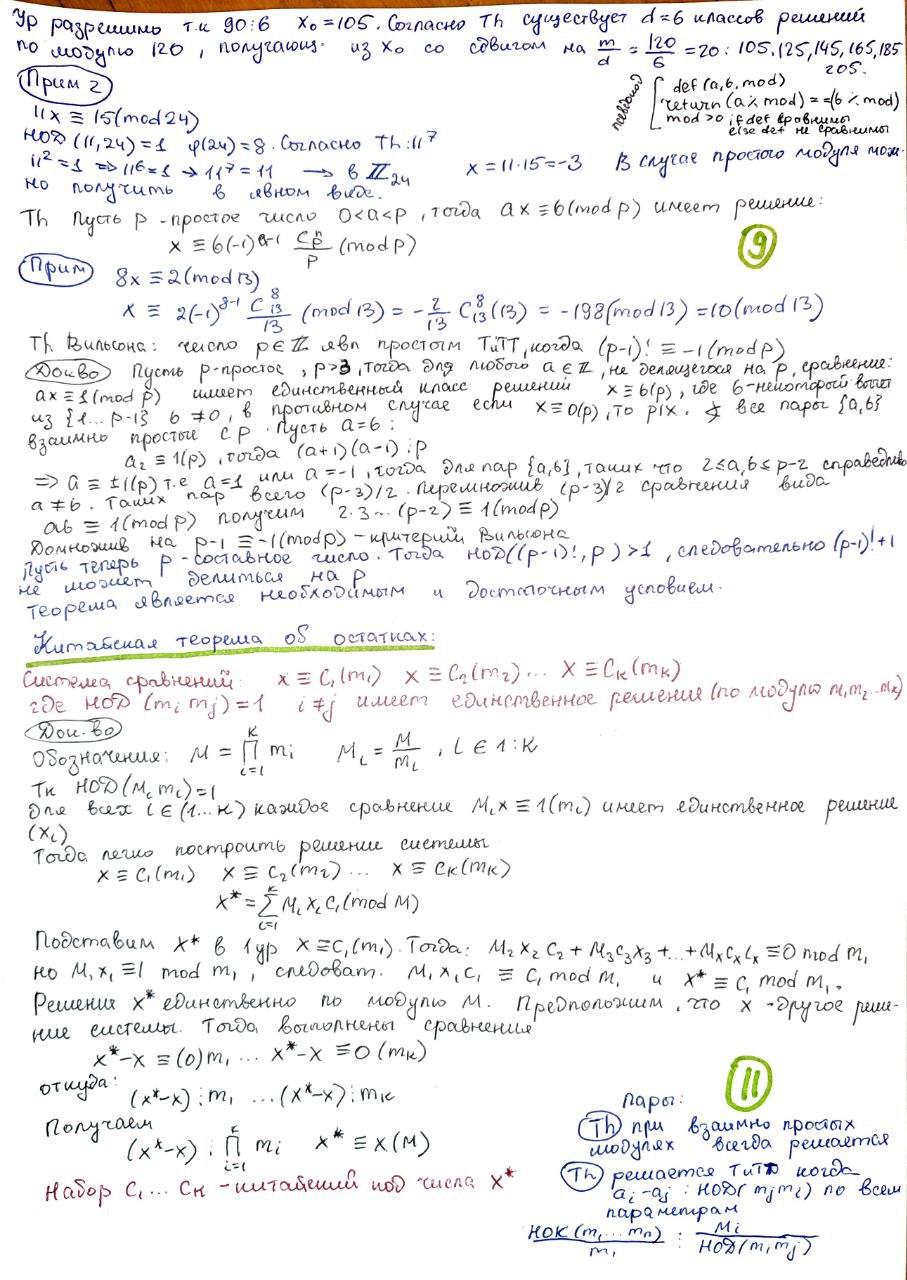 Ур разрешимо т.к 90⋮6 x₀=105. Согласно Th существует d=6 классов решений
по модулю 120, получающ. из x₀ со сдвигом на m/d = 120/6 = 20: 105, 125, 145, 165, 185
205.
Прим 2
псевдокод
def (a, b, mod)
return (a % mod) == (b % mod)
mod > 0 if def сравнимы
else def не сравнимы
11x ≡ 15(mod 24)
НОД (11,24)=1 φ(24)=8. Согласно Th: 11⁷
11²=1 ⇒ 11⁶=1 → 11⁷=11 → в ℤ₂₄ x=11·15=-3 В случае простого модуля мож-
но получить в явном виде.
Th Пусть p - простое число 0<a<p, тогда ax ≡ b(mod p) имеет решение:
x ≡ b(-1)ᵃ⁻¹ Cₚⁿ/p (mod p)
9
Прим 8x ≡ 2(mod 13)
x ≡ 2(-1)⁸⁻¹ C₁₃⁸/13 (mod 13) = -2/13 C₁₃⁸(13) = -198(mod 13) = 10(mod 13)
Th Вильсона: число p∈ℤ явл простым ТиТТ, когда (p-1)! ≡ -1(mod p)
Док-во Пусть p-простое, p>3, тогда для любого a∈ℤ, не делящегося на p, сравнение:
ax ≡ 1(mod p) имеет единственный класс решений x ≡ b(p), где b-некоторый вычет
из {1... p-1} b ≠ 0, в противном случае если x ≡ 0(p), то p|x. все пары {a,b}
взаимно простые с p. Пусть a=b:
a₂ ≡ 1(p), тогда (a+1)(a-1)⋮p
⇒ a ≡ ±1(p) т.е a=1 или a=-1, тогда для пар {a,b}, таких что 2≤a,b≤p-2 справедливо
a≠b. Таких пар всего (p-3)/2. Перемножив (p-3)/2 сравнения вида
ab ≡ 1(mod p) получим 2·3...(p-2) ≡ 1(mod p)
Домножив на p-1 ≡ -1(mod p) - критерий Вильсона
Пусть теперь p-составное число. Тогда НОД((p-1)!, p) >1, следовательно (p-1)!+1
не может делиться на p
теорема является необходимым и достаточным условием.
Китайская теорема об остатках:
Система сравнений: x ≡ C₁(m₁) x ≡ C₂(m₂)... x ≡ Cₖ(mₖ)
где НОД (mᵢ mⱼ)=1 i≠j имеет единственное решение (по модулю m₁m₂...mₖ)
Док-во
Обозначения: M = ∏ᵢ₌₁ᴷ mᵢ Mᵢ = M/mᵢ, i ∈ 1:K
Тк НОД(Mᵢ mᵢ)=1
для всех i∈(1...к) каждое сравнение Mᵢx ≡ 1(mᵢ) имеет единственное решение
(xᵢ)
Тогда легко построить решение системы
x ≡ C₁(m₁) x ≡ C₂(m₂)... x ≡ Cₖ(mₖ)
x* = ∑ᵢ₌₁ᴷ Mᵢ xᵢ Cᵢ (mod M)
Подставим x* в 1 ур x ≡ C₁(m₁). Тогда: M₂x₂C₂ + M₃C₃x₃ +...+ MₖCₖxₖ ≡ 0 mod m₁
но M₁x₁ ≡ 1 mod m₁, следоват. M₁x₁C₁ ≡ C₁ mod m₁ и x* ≡ C₁ mod m₁.
Решение x* единственно по модулю M. Предположим, что x - другое реше-
ние системы. Тогда выполнены сравнения
x*-x ≡ (0)m₁ ... x*-x ≡ 0(mₖ)
откуда:
(x*-x)⋮m₁ ...(x*-x)⋮mₖ
Получаем
(x*-x)⋮∏ᵢ₌₁ᴷ mᵢ x* ≡ x(M)
Набор C₁...Cₖ - китайский код числа x*
11
пары:
Th при взаимно простых
модулях всегда решается
Th решается ТиТТ когда
aᵢ-aⱼ ⋮ НОД(mⱼmᵢ) по всем
параметрам
НОК(m₁...mₙ)/m₁ ⋮ Mᵢ/НОД(mᵢmⱼ)